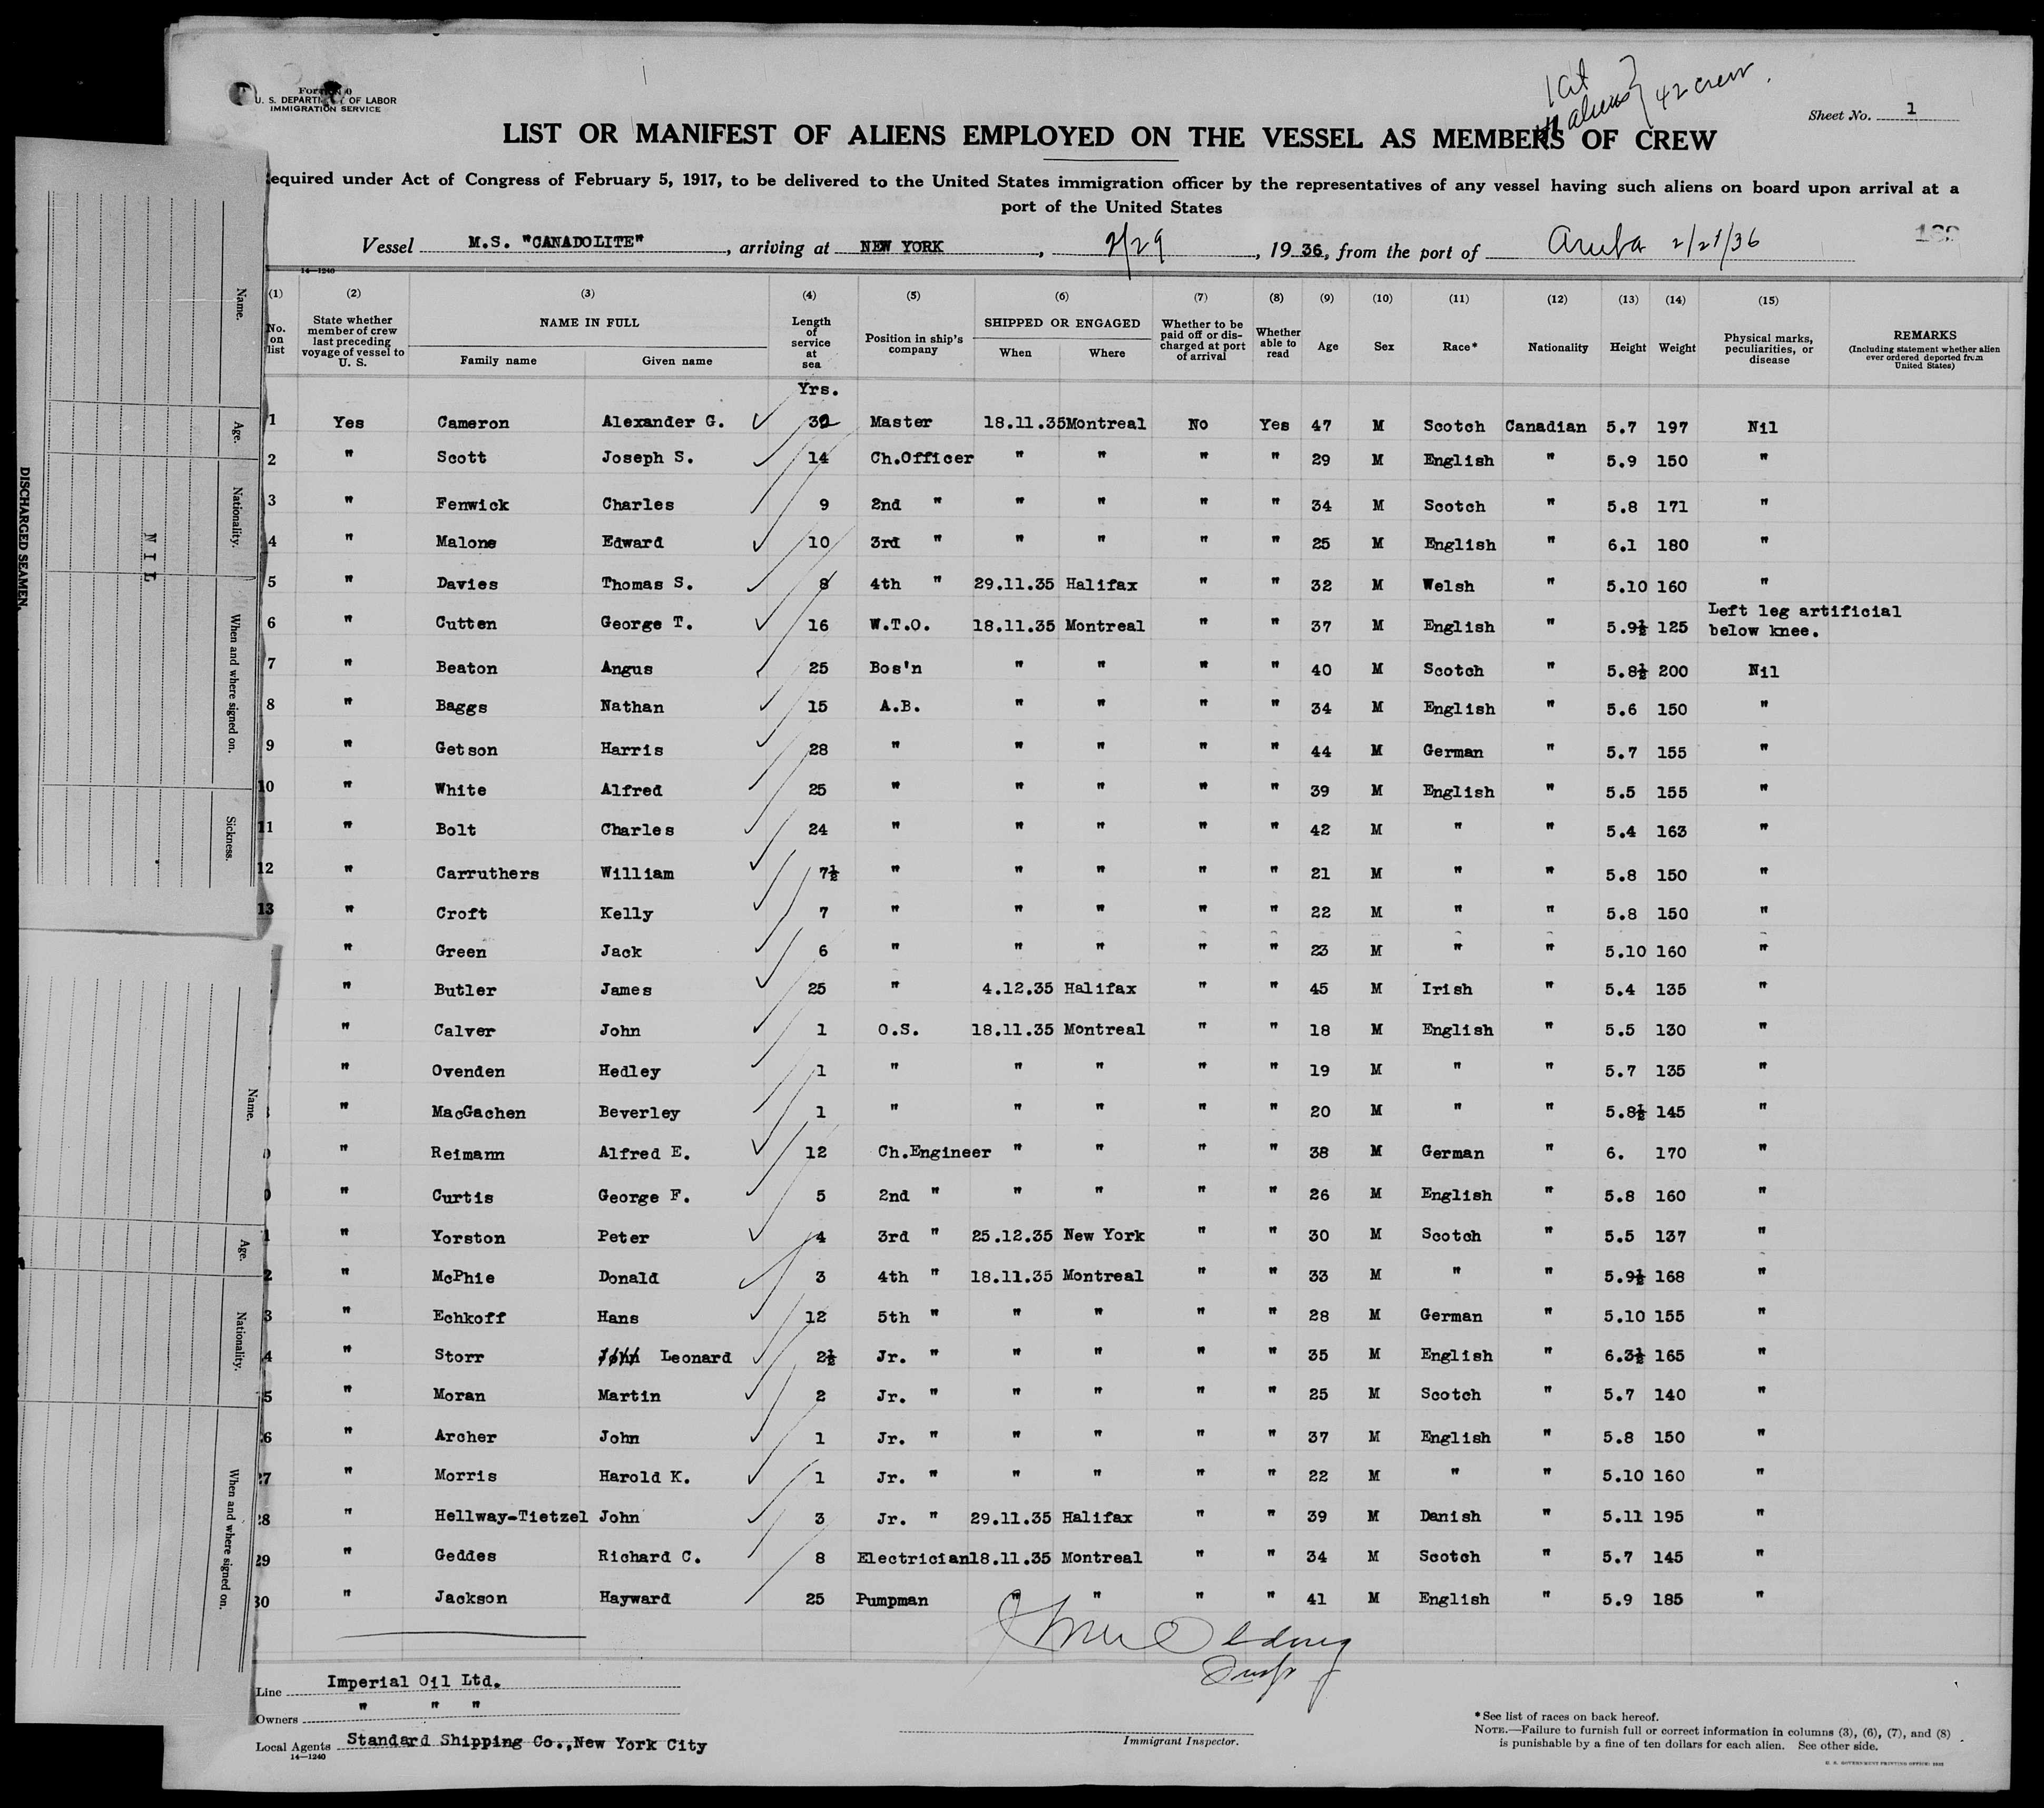 U. S. DEPARTMENT OF LABOR
IMMIGRATION SERVICE
1 Cit
41 aliens } 42 crew.
Sheet No. 1
LIST OR MANIFEST OF ALIENS EMPLOYED ON THE VESSEL AS MEMBERS OF CREW
equired under Act of Congress of February 5, 1917, to be delivered to the United States immigration officer by the representatives of any vessel having such aliens on board upon arrival at a
port of the United States
Vessel M.S. "CANADOLITE", arriving at NEW YORK, 2/29, 1936, from the port of Aruba 2/21/36
14—1240
(1) No. on list (2) State whether member of crew last preceding voyage of vessel to U. S. (3) NAME IN FULL Family name Given name (4) Length of service at sea (5) Position in ship's company (6) SHIPPED OR ENGAGED When Where (7) Whether to be paid off or discharged at port of arrival (8) Whether able to read (9) Age (10) Sex (11) Race* (12) Nationality (13) Height (14) Weight (15) Physical marks, peculiarities, or disease REMARKS (Including statement whether alien ever ordered deported from United States)
Yrs.
1 Yes Cameron Alexander G. 32 Master 18.11.35 Montreal No Yes 47 M Scotch Canadian 5.7 197 Nil
2 " Scott Joseph S. 14 Ch.Officer " " " " 29 M English " 5.9 150 "
3 " Fenwick Charles 9 2nd " " " " " 34 M Scotch " 5.8 171 "
4 " Malone Edward 10 3rd " " " " " 25 M English " 6.1 180 "
5 " Davies Thomas S. 8 4th " 29.11.35 Halifax " " 32 M Welsh " 5.10 160 "
6 " Cutten George T. 16 W.T.O. 18.11.35 Montreal " " 37 M English " 5.9½ 125 Left leg artificial below knee.
7 " Beaton Angus 25 Bos'n " " " " 40 M Scotch " 5.8½ 200 Nil
8 " Baggs Nathan 15 A.B. " " " " 34 M English " 5.6 150 "
9 " Getson Harris 28 " " " " " 44 M German " 5.7 155 "
10 " White Alfred 25 " " " " " 39 M English " 5.5 155 "
11 " Bolt Charles 24 " " " " " 42 M " " 5.4 163 "
12 " Carruthers William 7½ " " " " " 21 M " " 5.8 150 "
13 " Croft Kelly 7 " " " " " 22 M " " 5.8 150 "
" Green Jack 6 " " " " " 23 M " " 5.10 160 "
" Butler James 25 " 4.12.35 Halifax " " 45 M Irish " 5.4 135 "
" Calver John 1 O.S. 18.11.35 Montreal " " 18 M English " 5.5 130 "
" Ovenden Hedley 1 " " " " " 19 M " " 5.7 135 "
" MacGachen Beverley 1 " " " " " 20 M " " 5.8½ 145 "
" Reimann Alfred E. 12 Ch.Engineer " " " " 38 M German " 6. 170 "
0 " Curtis George F. 5 2nd " " " " " 26 M English " 5.8 160 "
1 " Yorston Peter 4 3rd " 25.12.35 New York " " 30 M Scotch " 5.5 137 "
2 " McPhie Donald 3 4th " 18.11.35 Montreal " " 33 M " " 5.9½ 168 "
3 " Echkoff Hans 12 5th " " " " " 28 M German " 5.10 155 "
4 " Storr John Leonard 2½ Jr. " " " " " 35 M English " 6.3½ 165 "
5 " Moran Martin 2 Jr. " " " " " 25 M Scotch " 5.7 140 "
6 " Archer John 1 Jr. " " " " " 37 M English " 5.8 150 "
27 " Morris Harold K. 1 Jr. " " " " " 22 M " " 5.10 160 "
28 " Hellway-Tietzel John 3 Jr. " 29.11.35 Halifax " " 39 M Danish " 5.11 195 "
29 " Geddes Richard C. 8 Electrician 18.11.35 Montreal " " 34 M Scotch " 5.7 145 "
30 " Jackson Hayward 25 Pumpman " " " " 41 M English " 5.9 185 "
Insp
Line Imperial Oil Ltd.
Owners " " "
Local Agents Standard Shipping Co.,New York City
14—1240
Immigrant Inspector.
* See list of races on back hereof.
NOTE.—Failure to furnish full or correct information in columns (3), (6), (7), and (8)
is punishable by a fine of ten dollars for each alien. See other side.
U. S. GOVERNMENT PRINTING OFFICE:
DISCHARGED SEAMEN.
Name. Age. Nationality. When and where signed on. Sickness.
NIL
Name. Age. Nationality. When and where signed on.